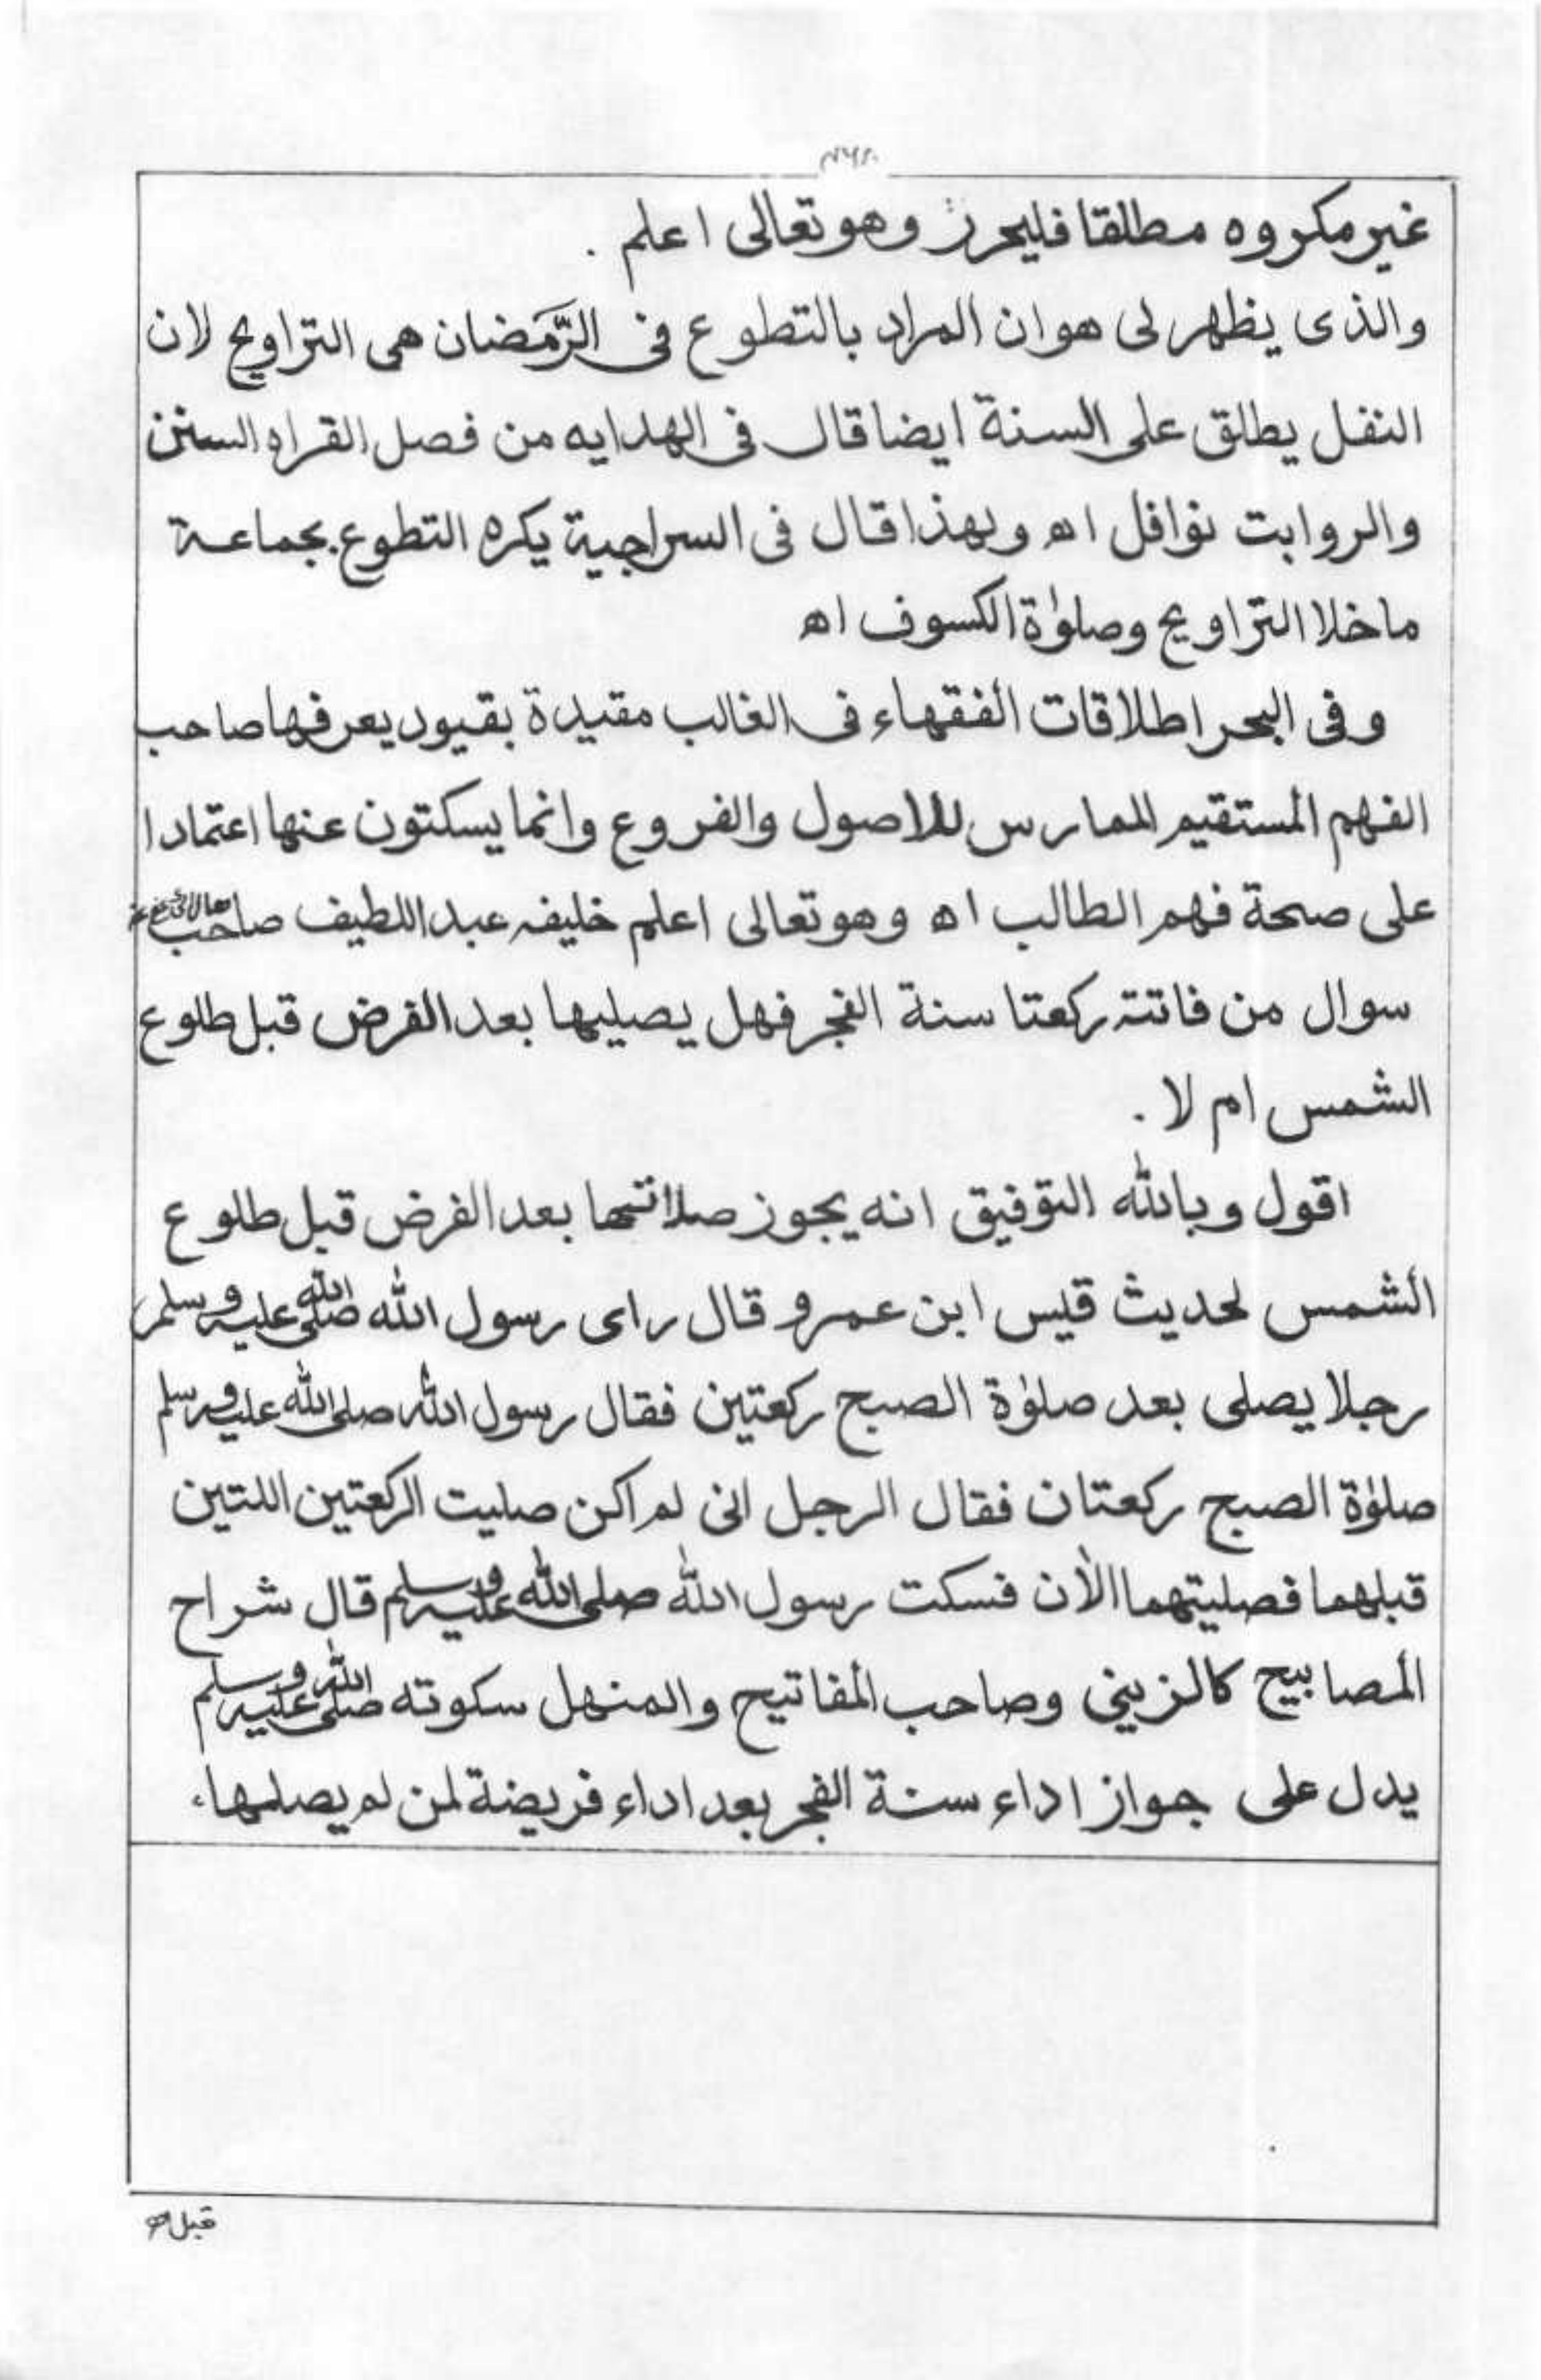 غير مكروه مطلقا فليحرر وهو تعالى اعلم .
والذى يظهر لى هو ان المراد بالتطوع فى الرّمَضان هى التراويح لان
النفل يطلق على السنة ايضا قال فى الهدايه من فصل القراه السنن
والروابت نوافل اه وبهذا قال فى السراجية يكره التطوع بجماعة
ماخلا التراويح وصلوٰة الكسوف اه
وفى البحر اطلاقات الفقهاء فى الغالب مقيدة بقيود يعرفها صاحب
الفهم المستقيم الممارس للاصول والفروع وانما يسكتون عنها اعتمادا
على صحة فهم الطالب اه وهو تعالى اعلم خليفه عبد اللطيف صاحب
سوال من فاتته ركعتا سنة الفجر فهل يصليها بعد الفرض قبل طلوع
الشمس ام لا .
اقول وبالله التوفيق انه يجوز صلاتهما بعد الفرض قبل طلوع
الشمس لحديث قيس ابن عمرو قال راى رسول الله صلى الله عليه وسلم
رجلا يصلى بعد صلوٰة الصبح ركعتين فقال رسول الله صلى الله عليه وسلم
صلوٰة الصبح ركعتان فقال الرجل انى لم اكن صليت الركعتين اللتين
قبلهما فصليتهما الأن فسكت رسول الله صلى الله عليه وسلم قال شراح
المصابيح كالزينى وصاحب المفاتيح والمنهل سكوته صلى الله عليه وسلم
يدل على جواز اداء سنة الفجر بعد اداء فريضة لمن لم يصلها،
قبل